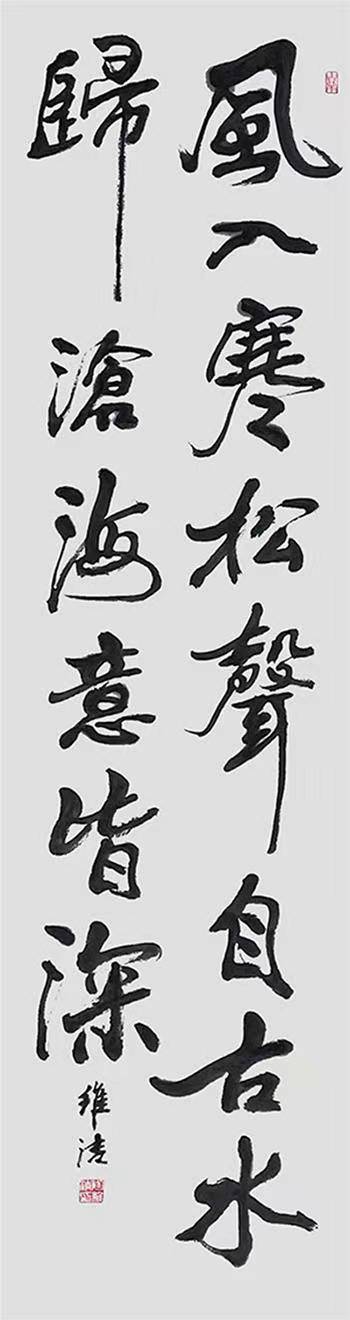 風入寒松聲自古水
歸滄海意皆深
維